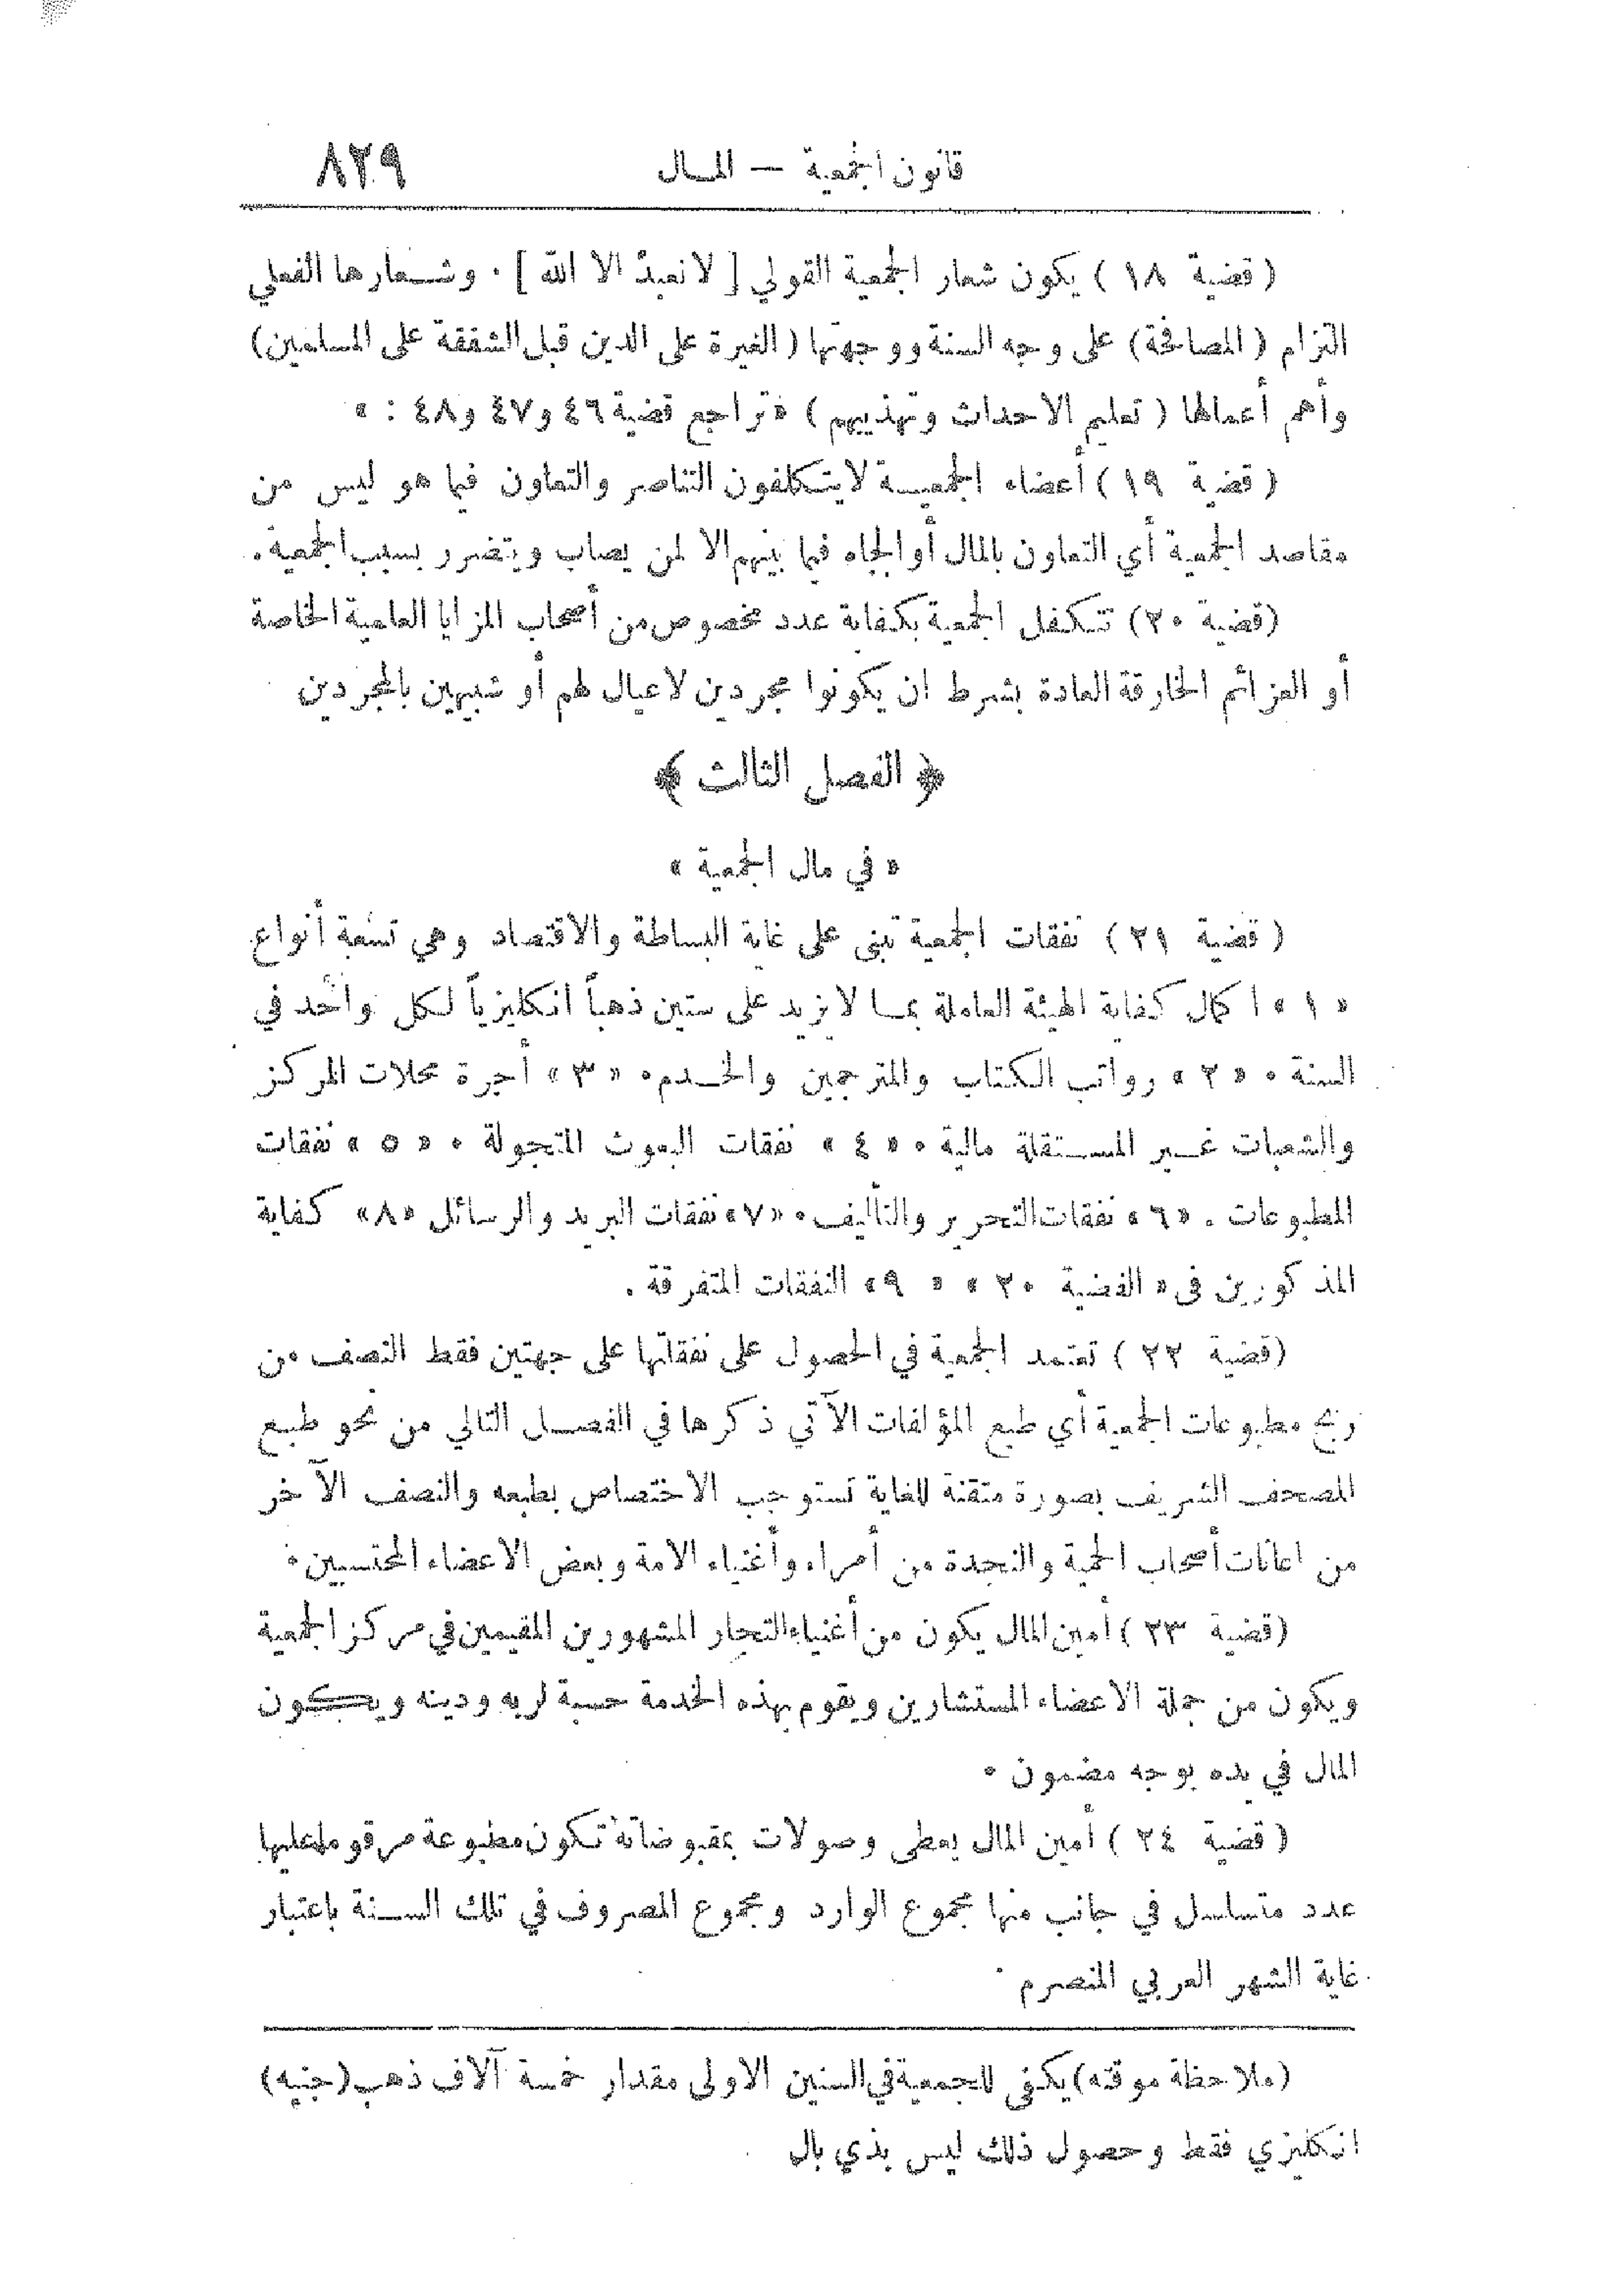 قانون الجمعية — المال ٨٢٩
( قضية ١٨ ) يكون شعار الجمعية القولي [ لانعبد الا الله ] . وشعارها الفعلي
التزام ( المصافحة ) على وجه السنة ووجهتها ( الغيرة على الدين قبل الشفقة على المسلمين )
وأهم أعمالها ( تعليم الاحداث وتهذيبهم ) « تراجع قضية ٤٦ و٤٧ و٤٨ : »
( قضية ١٩ ) أعضاء الجمعية لايتكلفون التناصر والتعاون فيما هو ليس من
مقاصد الجمعية أي التعاون بالمال أو الجاه فيما بينهم الا لمن يصاب ويتضرر بسبب الجمعية .
(قضية ٢٠) تتكفل الجمعية بكفاية عدد مخصوص من أصحاب المزايا العلمية الخاصة
أو العزائم الخارقة العادة بشرط ان يكونوا مجردين لاعيال لهم أو شبيهين بالمجردين
﴿ الفصل الثالث ﴾
« في مال الجمعية »
( قضية ٢١ ) نفقات الجمعية تبنى على غاية البساطة والاقتصاد وهي تسعة أنواع
« ١ » اكمال كفاية الهيئة العاملة بما لا يزيد على ستين ذهباً انكليزياً لكل واحد في
السنة . « ٢ » رواتب الكتاب والمترجمين والخدم . « ٣ » أجرة محلات المركز
والشعبات غير المستقلة مالية . « ٤ » نفقات البعوث المتجولة . « ٥ » نفقات
المطبوعات . « ٦ » نفقات التحرير والتأليف . « ٧ » نفقات البريد والرسائل « ٨ » كفاية
المذكورين في « القضية ٢٠ » « ٩ » النفقات المتفرقة .
(قضية ٢٢ ) تعتمد الجمعية في الحصول على نفقاتها على جهتين فقط النصف من
ربح مطبوعات الجمعية أي طبع المؤلفات الآتي ذكرها في الفصل التالي من نحو طبع
المصحف الشريف بصورة متقنة للغاية تستوجب الاختصاص بطبعه والنصف الآخر
من اعانات أصحاب الحمية والنجدة من أمراء وأغنياء الامة وبعض الاعضاء المحتسبين .
(قضية ٢٣ ) أمين المال يكون من أغنياء التجار المشهورين المقيمين في مركز الجمعية
ويكون من جملة الاعضاء المستشارين ويقوم بهذه الخدمة حسبة لربه ودينه ويكون
المال في يده بوجه مضمون .
( قضية ٢٤ ) أمين المال يعطى وصولات بمقبوضاته تكون مطبوعة مرقوما عليها
عدد متسلسل في جانب منها مجموع الوارد ومجموع المصروف في تلك السنة باعتبار
غاية الشهر العربي المنصرم .
(ملاحظة موقته) يكفي للجمعية في السنين الاولى مقدار خمسة آلاف ذهب (جنيه)
انكليزي فقط وحصول ذلك ليس بذي بال